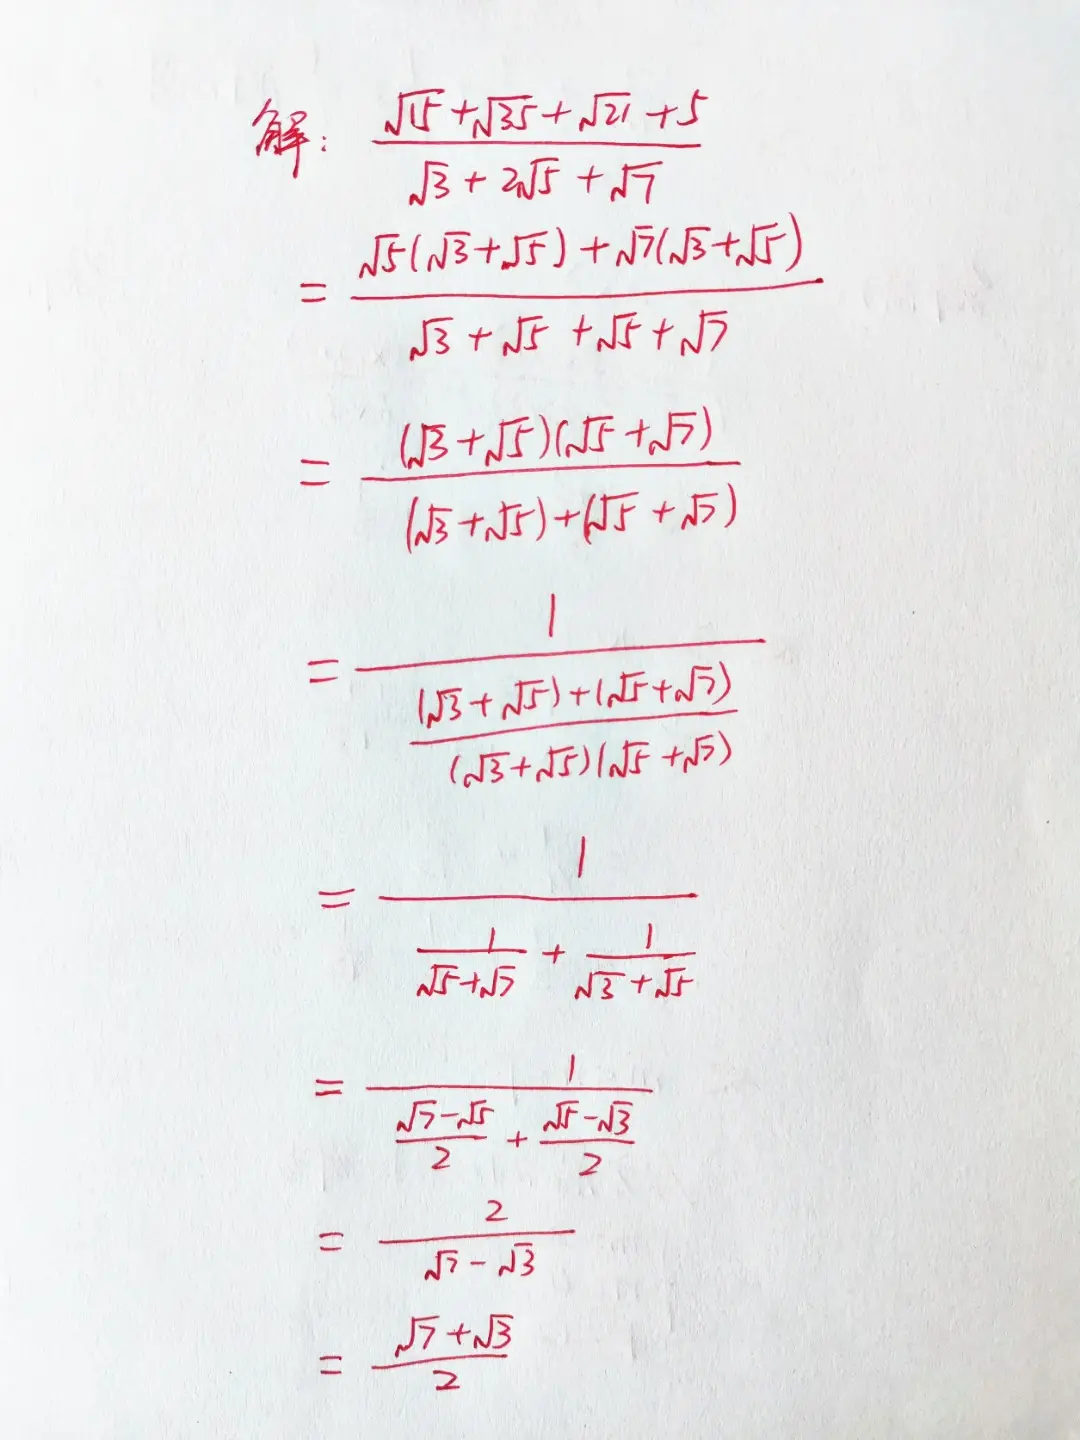 解: (√15+√35+√21+5)/(√3+2√5+√7)
= (√5(√3+√5)+√7(√3+√5))/(√3+√5+√5+√7)
= ((√3+√5)(√5+√7))/((√3+√5)+(√5+√7))
= 1/(((√3+√5)+(√5+√7))/((√3+√5)(√5+√7)))
= 1/(1/(√5+√7)+1/(√3+√5))
= 1/((√7-√5)/2+(√5-√3)/2)
= 2/(√7-√3)
= (√7+√3)/2